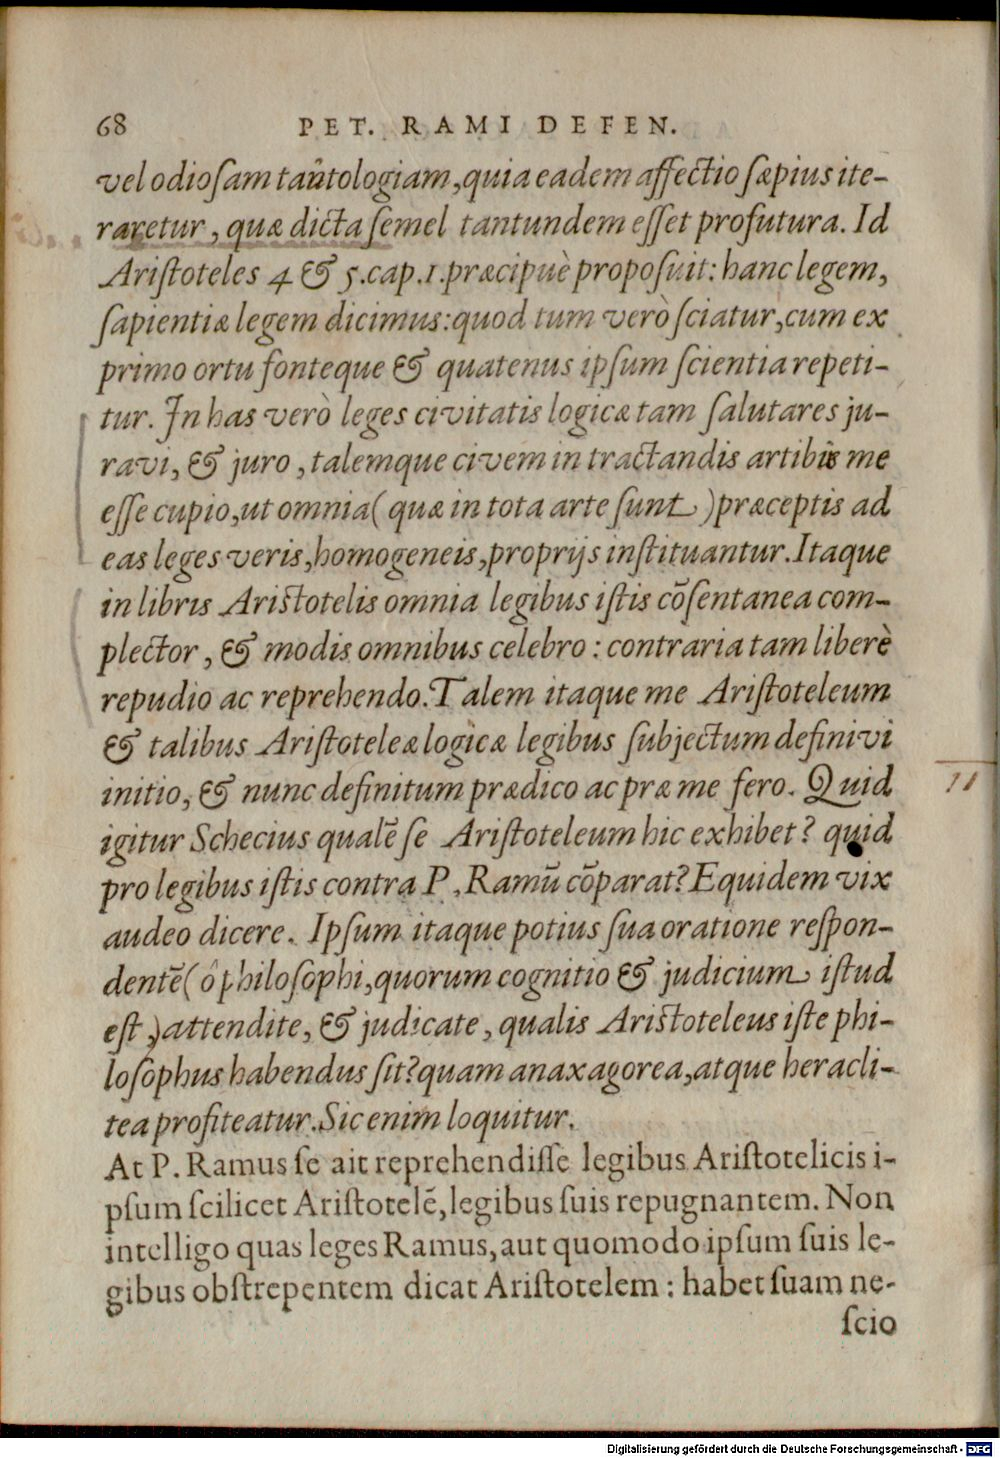 68 PET. RAMI DEFEN.
vel odioſam tautologiam, quia eadem affectio ſæpius ite-
raretur, quæ dicta ſemel tantundem eſſet profutura. Id
Ariſtoteles 4 & 5. cap. 1. præcipuè propoſuit: hanc legem,
ſapientiæ legem dicimus: quod tum verò ſciatur, cum ex
primo ortu fonteque & quatenus ipſum ſcientia repeti-
tur. In has verò leges civitatis logicæ tam ſalutares ju-
ravi, & juro, talemque civem in tractandis artibus me
eſſe cupio, ut omnia (quæ in tota arte ſunt) præceptis ad
eas leges veris, homogeneis, proprijs inſtituantur. Itaque
in libris Ariſtotelis omnia legibus iſtis cõſentanea com-
plector, & modis omnibus celebro: contraria tam liberè
repudio ac reprehendo. Talem itaque me Ariſtoteleum
& talibus Ariſtoteleæ logicæ legibus ſubjectum definivi
initio, & nunc definitum prædico ac præ me fero. Quid
11
igitur Schecius qualẽ ſe Ariſtoteleum hic exhibet? quid
pro legibus iſtis contra P. Ramũ cõparat? Equidem vix
audeo dicere. Ipſum itaque potius ſua oratione reſpon-
dentẽ (ô philoſophi, quorum cognitio & judicium iſtud
eſt) attendite, & judicate, qualis Ariſtoteleus iſte phi-
loſophus habendus ſit? quam anaxagorea, atque heracli-
tea profiteatur. Sic enim loquitur.
At P. Ramus ſe ait reprehendiſſe legibus Ariſtotelicis i-
pſum ſcilicet Ariſtotelẽ, legibus ſuis repugnantem. Non
intelligo quas leges Ramus, aut quomodo ipſum ſuis le-
gibus obſtrepentem dicat Ariſtotelem: habet ſuam ne-
ſcio
Digitalisierung gefördert durch die Deutsche Forschungsgemeinschaft - DFG